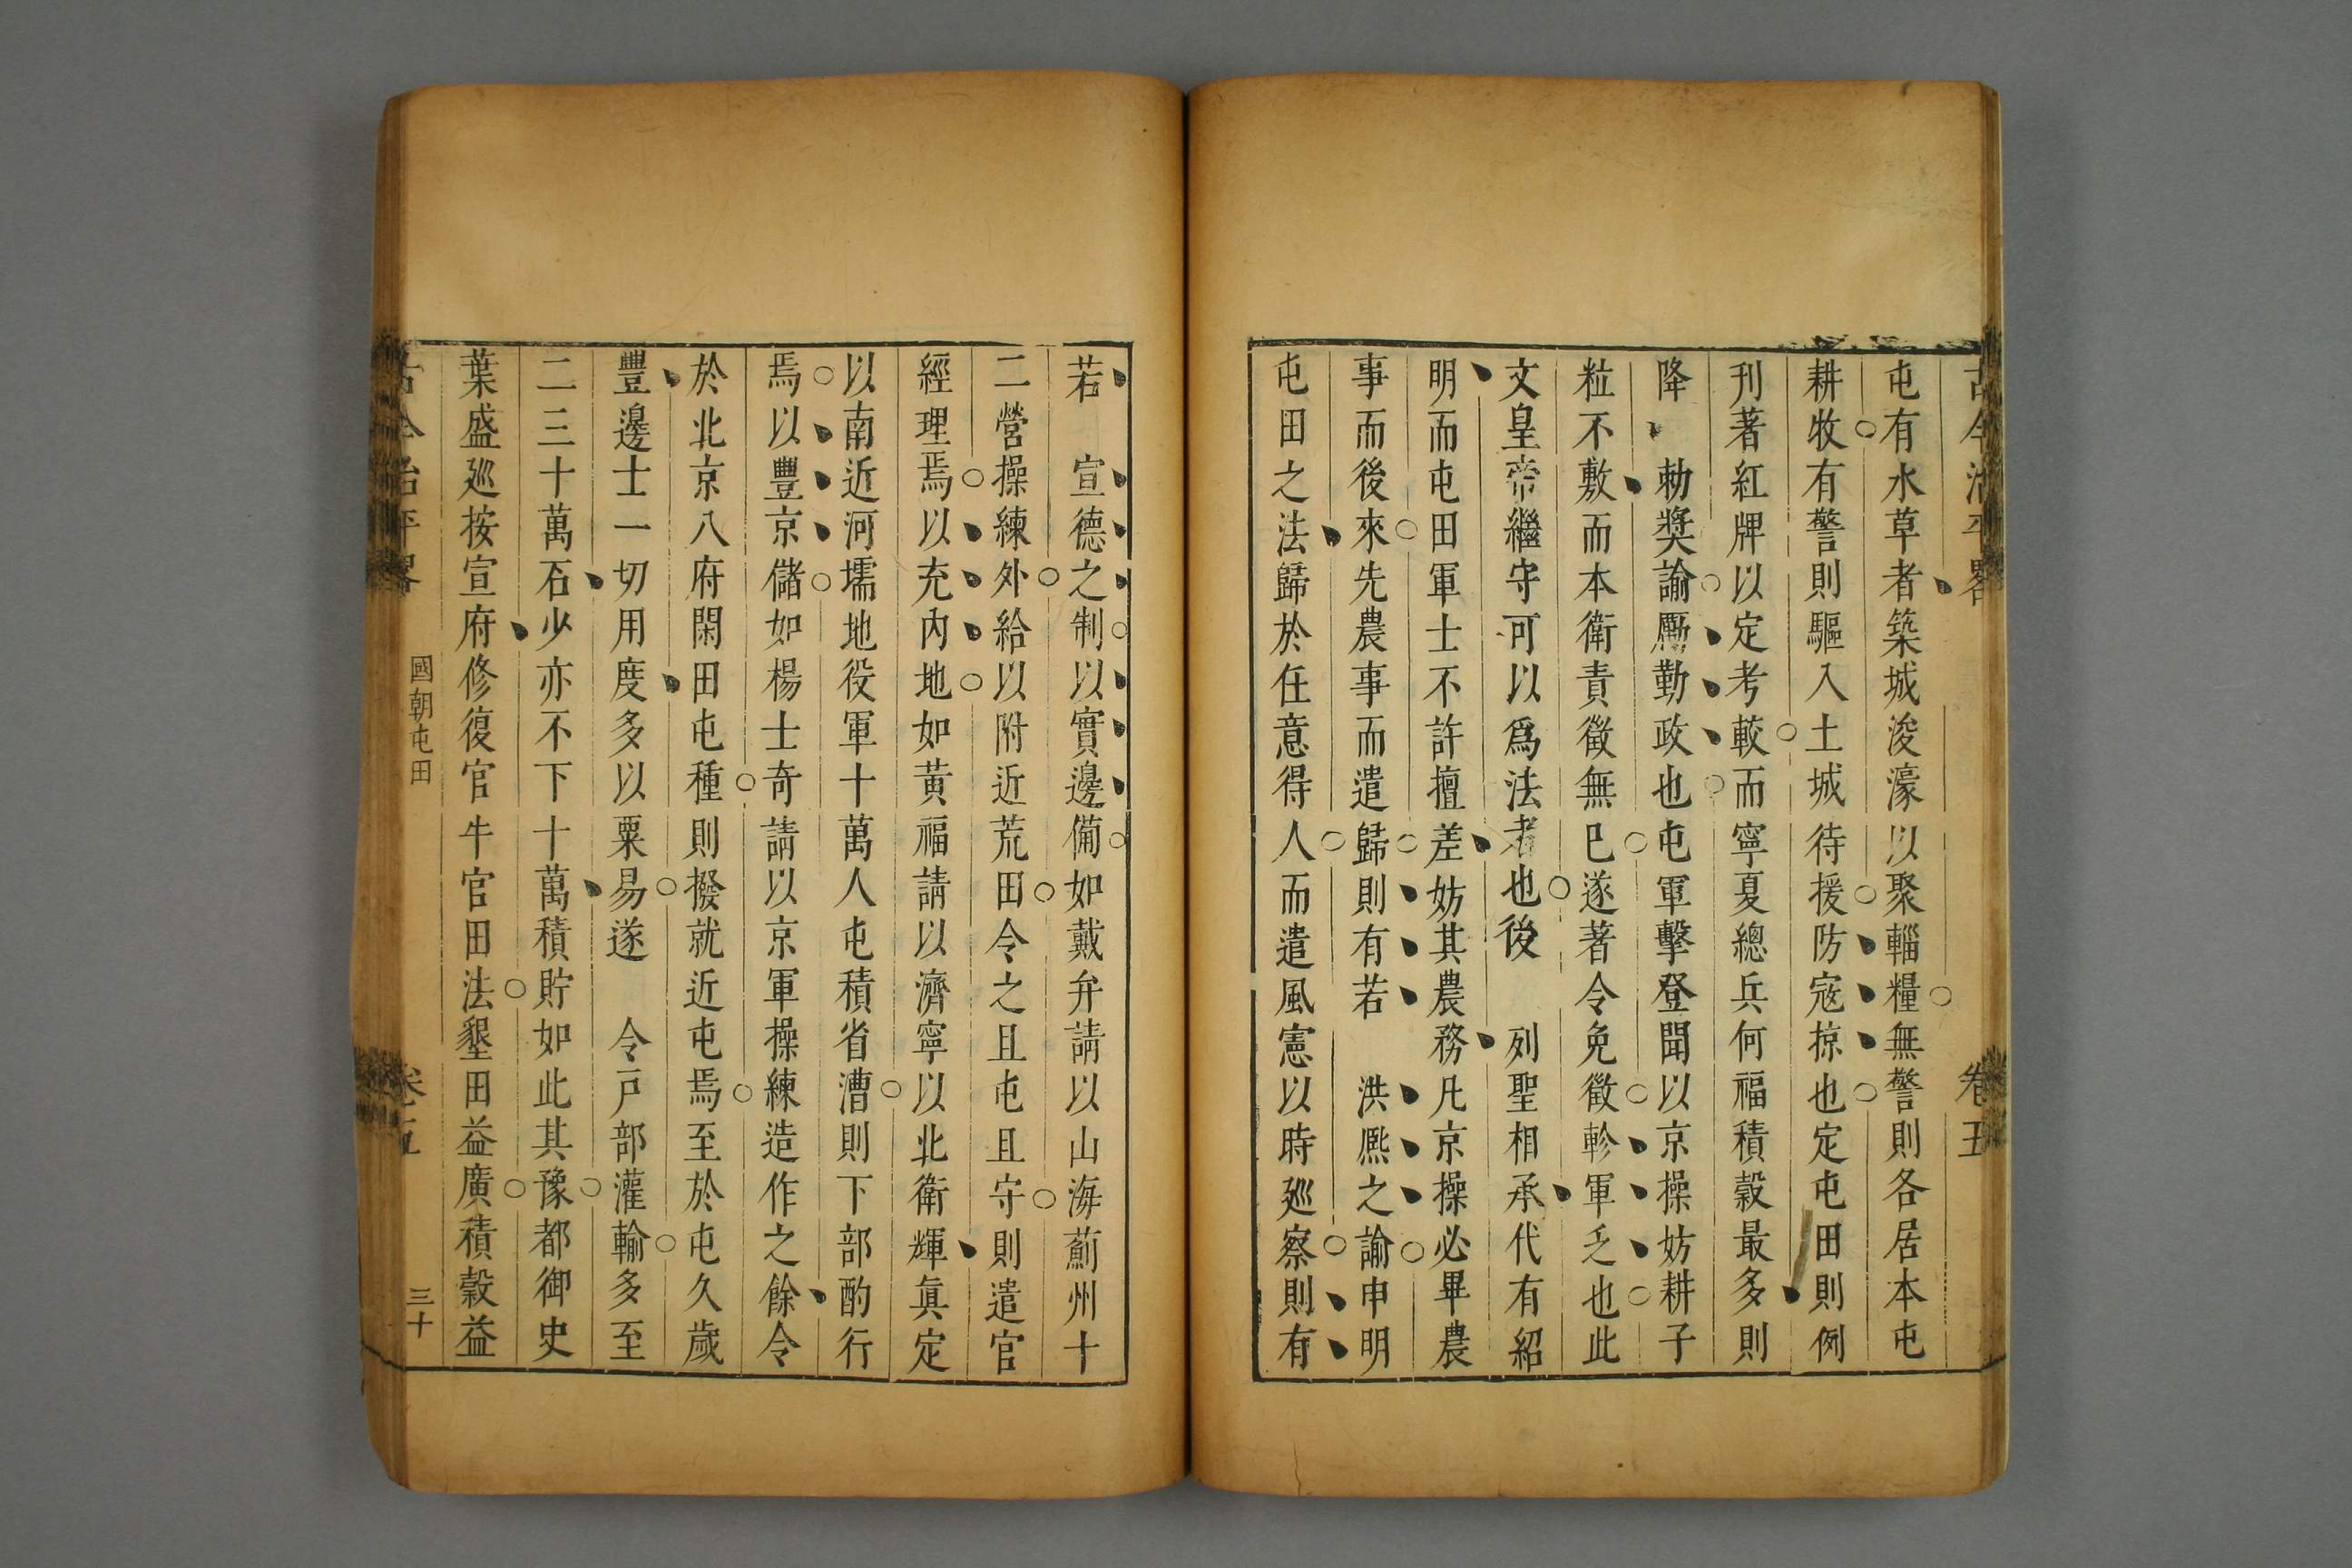 古今治平畧
卷五
屯有水草者築城浚濠以聚輜糧無警則各居本屯
耕牧有警則驅入土城待援防寇掠也定屯田則例
刊著紅牌以定考較而寧夏總兵何福積穀最多則
降　勅獎諭勵勤政也屯軍擊登聞以京操妨耕子
粒不敷而本衛責徵無已遂著令免徵軫軍乏也此
文皇帝繼守可以爲法者也後　列聖相承代有紹
明而屯田軍士不許擅差妨其農務凡京操必畢農
事而後來先農事而遣歸則有若　洪熈之諭申明
屯田之法歸於任意得人而遣風憲以時廵察則有
若　宣德之制以實邊備如戴弁請以山海薊州十
二營操練外給以附近荒田令之且屯且守則遣官
經理焉以充內地如黃福請以濟寧以北衛輝眞定
以南近河壖地役軍十萬人屯積省漕則下部酌行
焉以豐京儲如楊士奇請以京軍操練造作之餘令
於北京八府閑田屯種則撥就近屯焉至於屯久歲
豐邊士一切用度多以粟易遂　令戸部灌輸多至
二三十萬石少亦不下十萬積貯如此其豫都御史
葉盛廵按宣府修復官牛官田法墾田益廣積穀益
古今治平畧
國朝屯田
卷五
三十